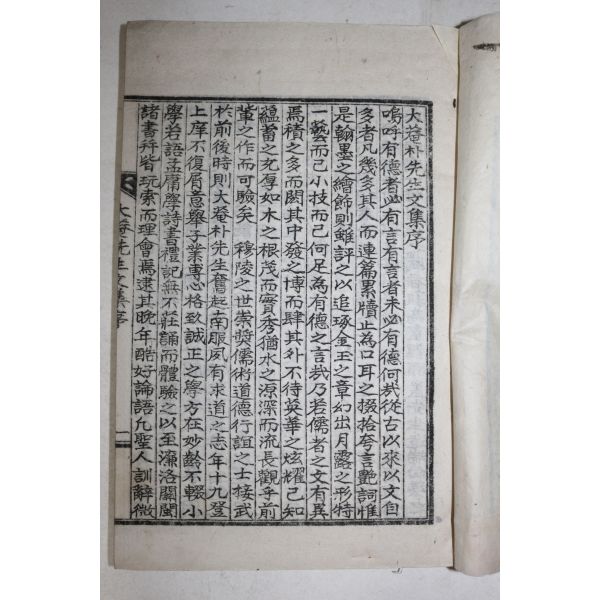 大菴朴先生文集序
嗚呼有德者必有言有言者未必有德何哉從古以來以文自
多者凡幾多其人而連篇累牘止為口耳之掇拾夸言艶詞惟
是翰墨之繪飾則雖評之以追琢金玉之章幻出月露之形特
一藝而已小技而已何足為有德之言哉乃若儒者之文有異
焉積之多而闖其中發之博而肆其外不待英華之炫耀已知
蘊蓄之充厚如木之根茂而實秀猶水之源深而流長觀乎前
輩之作而可驗矣 穆陵之世崇奬儒術道德行誼之士接武
於前後時則大菴朴先生奮起南服夙有求道之志年十九登
上庠不復屑意舉子業專心格致誠正之學方在妙齡不輟小
學若語孟庸學詩書禮記無不莊誦而體驗之以至濂洛關閩
諸書行皆玩索而理會焉逮其晚年酷好論語凡聖人訓辭微
大菴先生文集序